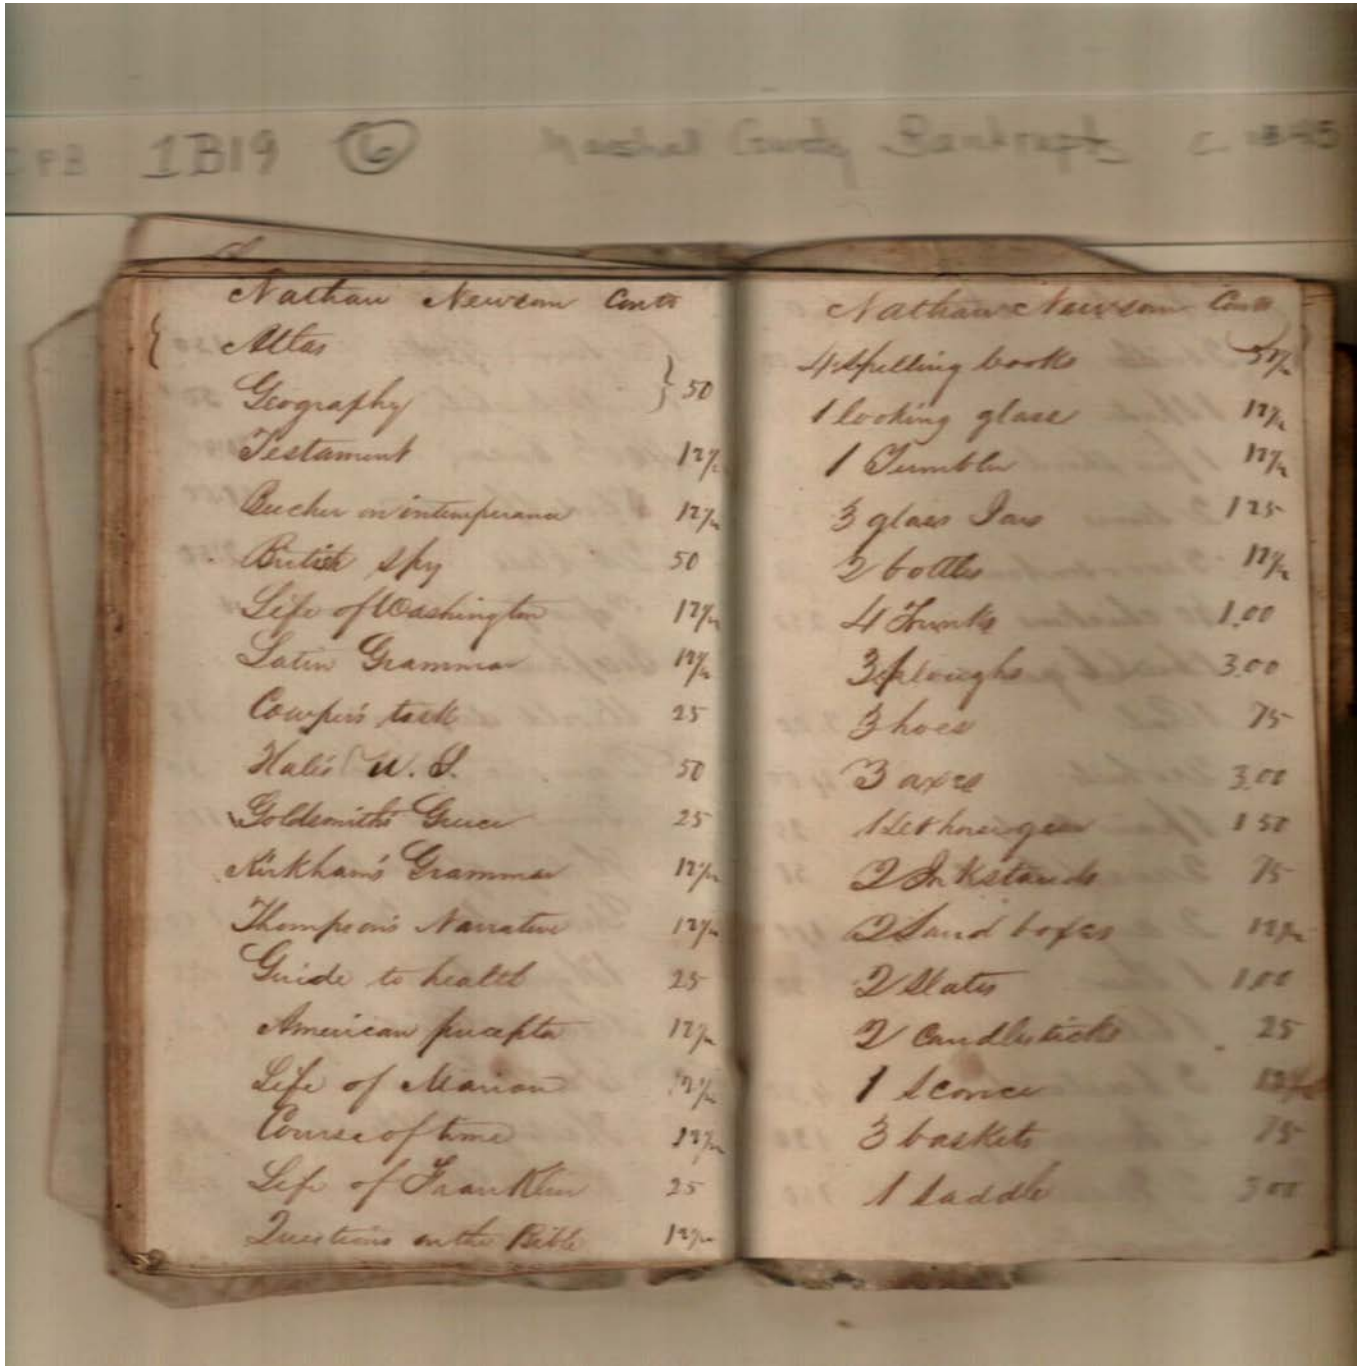 1B19 6 Marshal County Bankrupt C
Nathan Newsom Contd
Atlas
Geography } 50
Testament 12½
Beecher on intemperance 12½
British Spy 50
Life of Washington 12½
Latin Grammar 12½
Cowper's task 25
Hale's U. S. 50
Goldsmith's Greece 25
Kirkham's Grammar 12½
Thompson's Narrative 12½
Guide to health 25
American precepts 12½
Life of Marion 12½
Course of time 12½
Life of Franklin 25
Questions on the Bible 12½
Nathan Newsom Contd
4 Spelling books 50
1 looking glass 12½
1 Tumbler 12½
3 glass Jars 125
2 bottles 12½
4 Trunks 1.00
3 ploughs 3.00
3 hoes 75
3 axes 3.00
1 Set horse gear 1 50
2 Inkstands 75
2 Sand boxes 12½
2 Slates 1.00
2 Candlesticks 25
1 Sconce 12½
3 baskets 75
1 Saddle 3 00